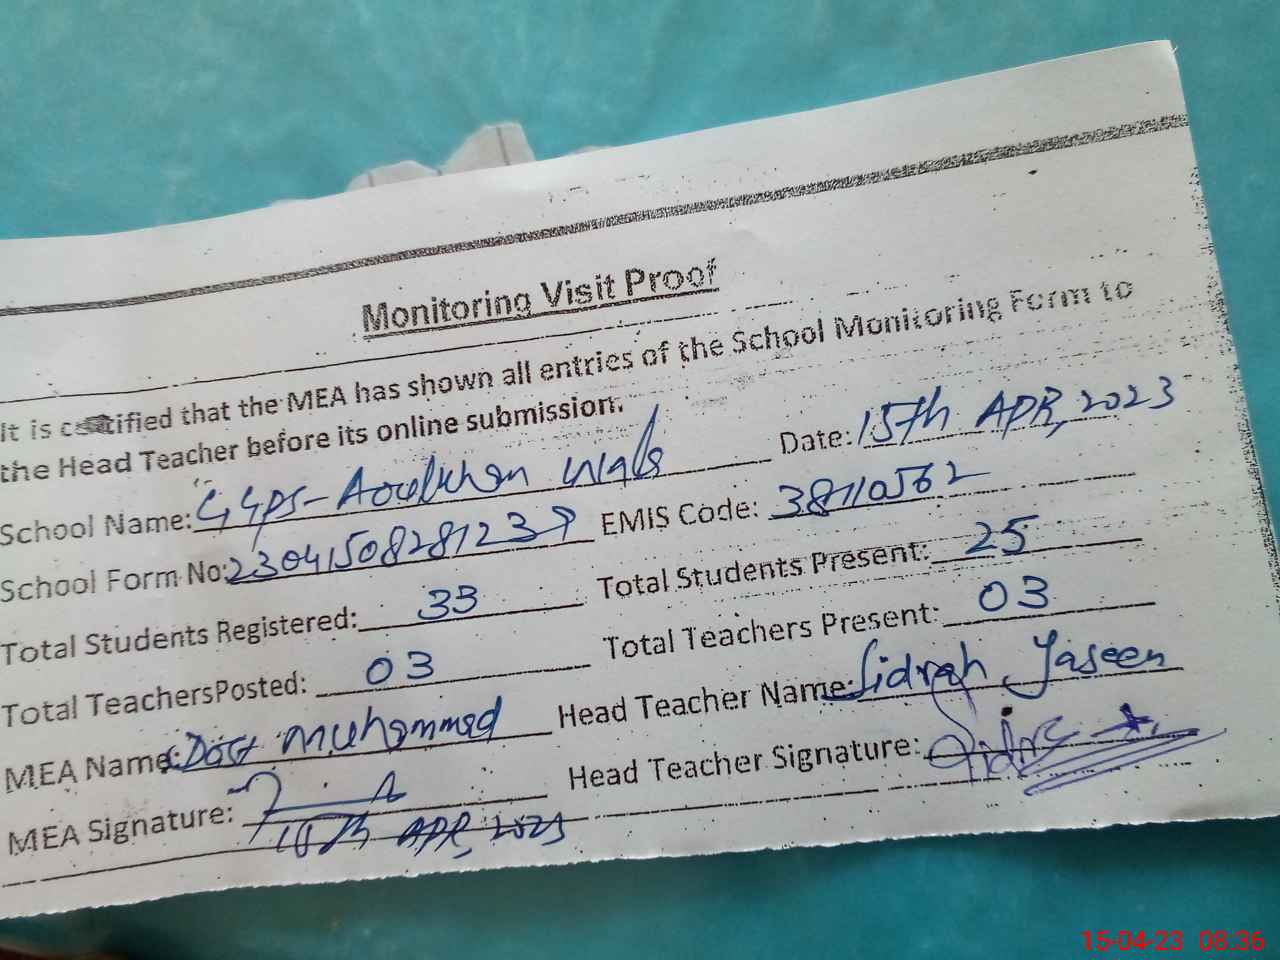 Monitoring Visit Proof
It is certified that the MEA has shown all entries of the School Monitoring Form to
the Head Teacher before its online submission.
School Name: GGPS- Wala Date: 15th APR, 2023
School Form No: 23041508281239 EMIS Code: 38110562
Total Students Registered: 33 Total Students Present: 25
Total TeachersPosted: 03 Total Teachers Present: 03
MEA Name: Dost Muhammad Head Teacher Name: Sidrah Yaseen
MEA Signature: Head Teacher Signature:
15th APR, 2023
15-04-23 08:36